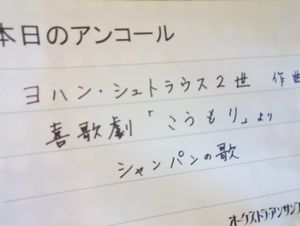 本日のアンコール
ヨハン・シュトラウス2世 作曲
喜歌劇「こうもり」より
シャンパンの歌
オーケストラ・アンサンブ